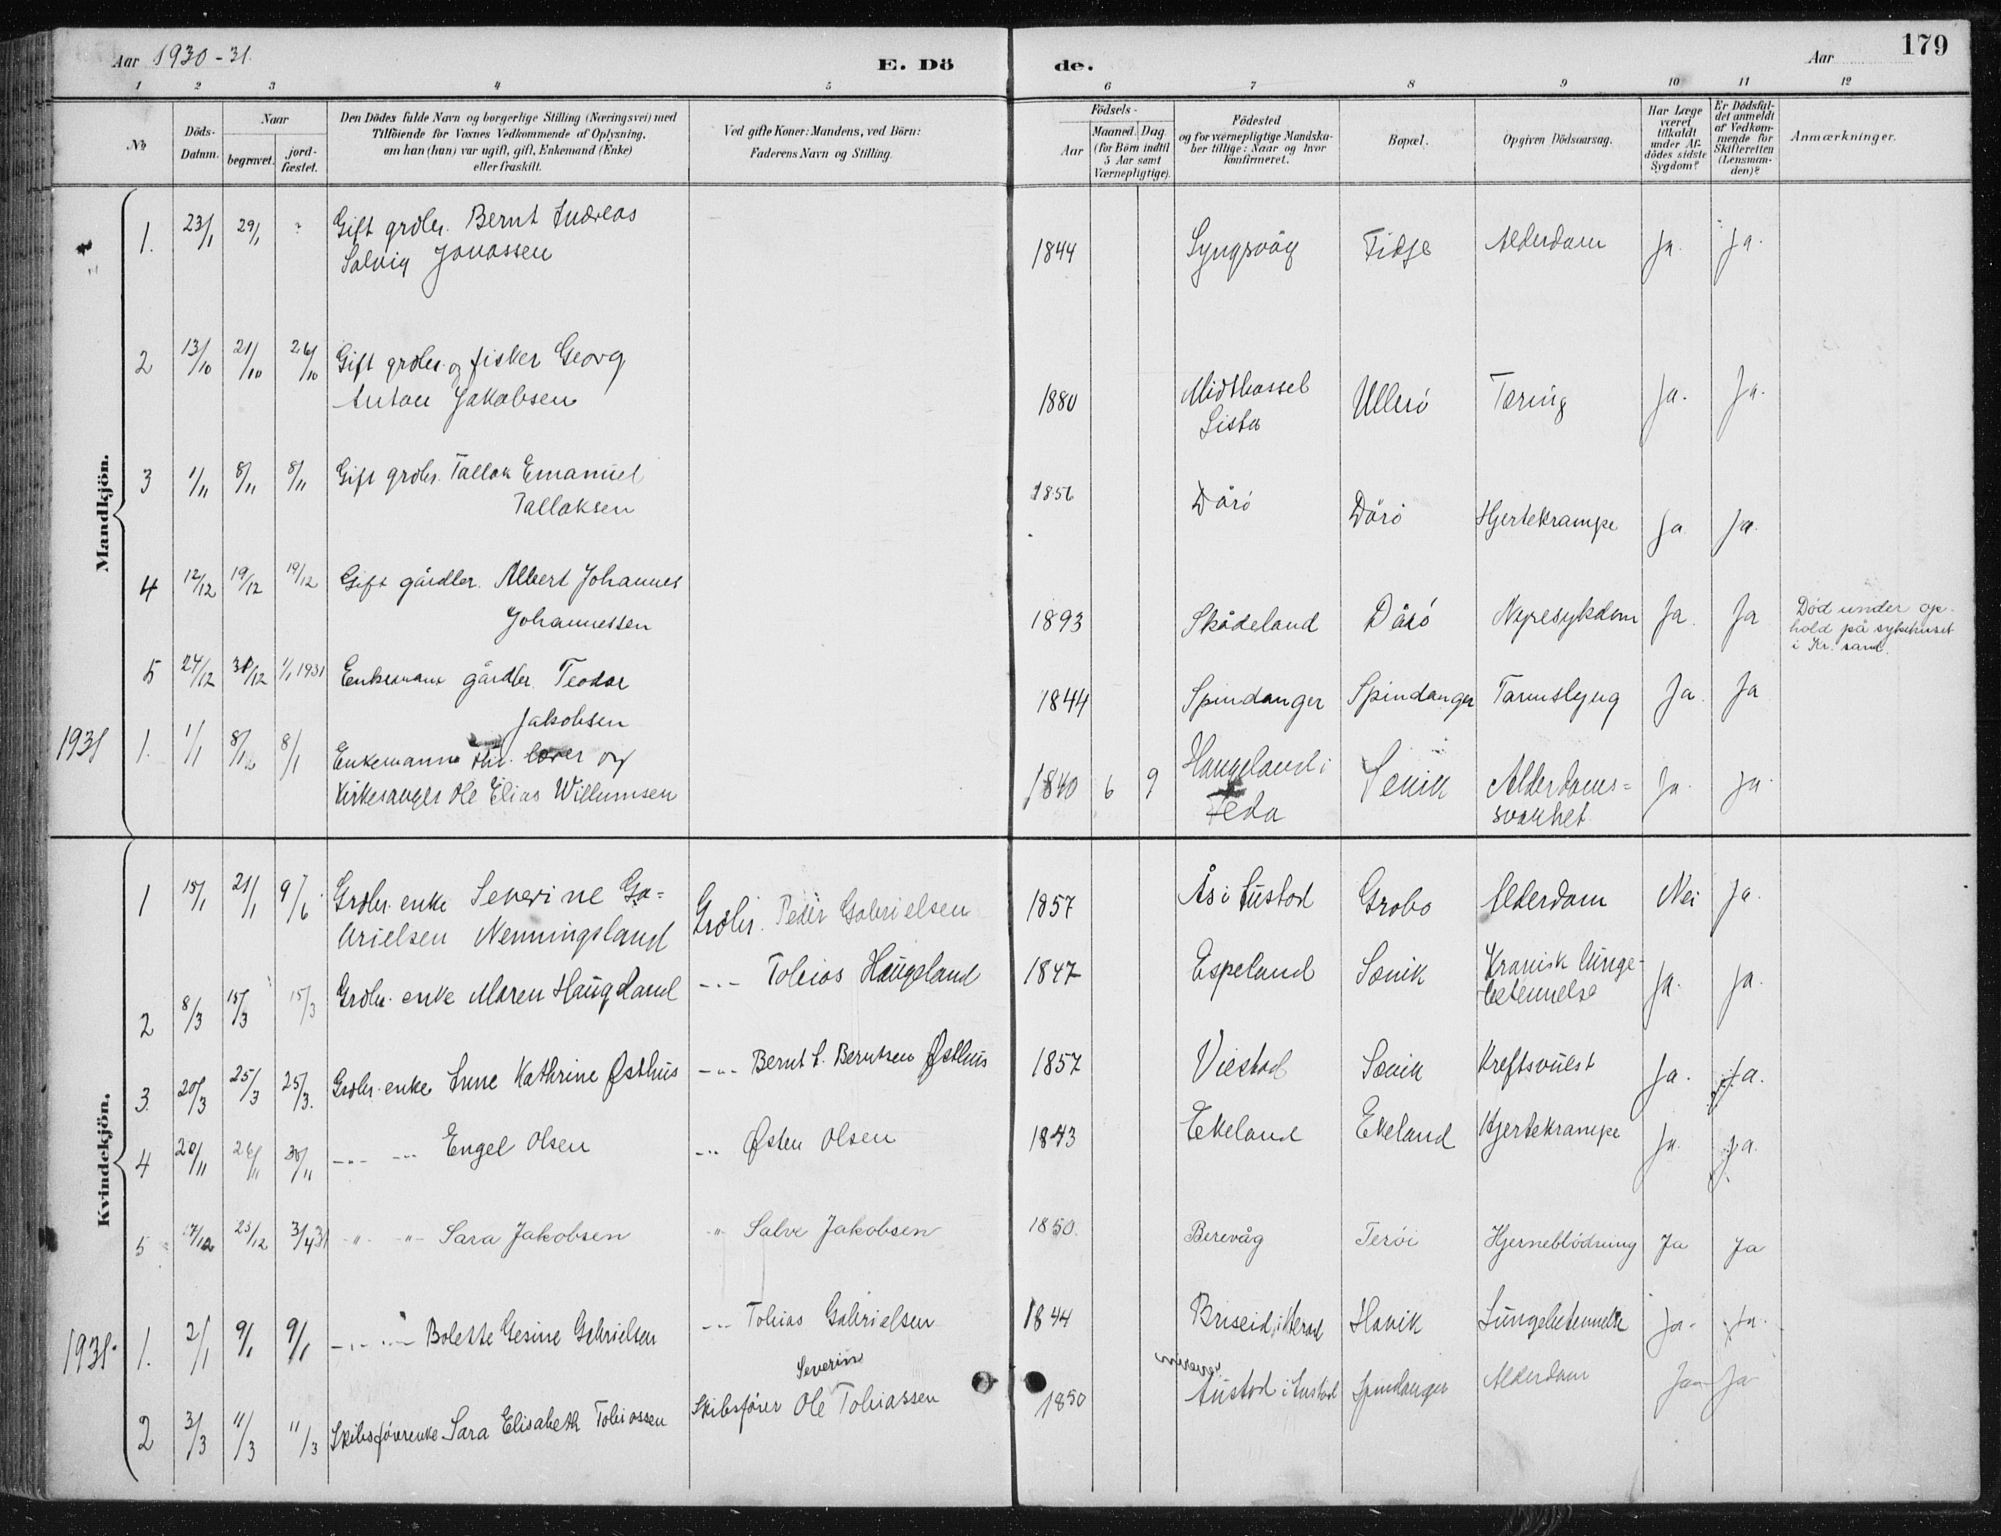 Aar 1930-31.
E. Dö
de.
Aar
179
1 2 3 4 5 6 7 8 9 10 11 12
No
Döds-
Datum.
Naar
begravet.
jord-
fæstet.
Den Dödes fulde Navn og borgerlige Stilling (Næringsvei) med
Tilföiende for Voxnes Vedkommende af Oplysning,
om han (hun) var ugift, gift, Enkemand (Enke)
eller fraskilt.
Ved gifte Koner: Mandens, ved Börn:
Faderens Navn og Stilling.
Födsels-
Aar
Maaned. Dag
(for Börn indtil
5 Aar samt
Værnepligtige).
Födested
og for værnepligtige Mandska-
ber tillige: Naar og hvor
konfirmeret.
Bopæl.
Opgiven Dödsaarsag.
Har Læge
været
tilkaldt
under Af-
dödes sidste
Sygdom?
Er Dödsfal-
det anmeldt
af Vedkom-
mende for
Skifteretten
(Lensman-
den)?
Anmærkninger.
Mandkjön.
1. 23/1 29/1 Gift grdbr. Bernt Andreas
Salvig Jonassen
1844 Syngsvåg Tidje Alderdom Ja. Ja.
2 13/10 21/10 26/10 Gift grdbr. og fisker Georg
Anton Jakobsen
1880 Midthassel
Lista Ullerö Tæring Ja. Ja.
3 1/11 8/11 8/11 Gift grdbr. Tallak Emanuel
Tallaksen
1856 Dårö Dårö Hjertekrampe Ja Ja.
4 12/12 19/12 19/12 Gift gårdbr. Albert Johannes
Johannessen
1893 Skådeland Dårö Nyresykdom Ja. Ja Död under op-
hold på sykehuset
i Kr. sand.
5 24/12 31/12 1/1 1931 Enkemann gårdbr. Teodor
Jakobsen
1844 Spindanger Spindanger Tarmslyng Ja. Ja
1931 1. 1/1 8/1 8/1 Enkemann lærer og
Kirkesanger Ole Elias Willumsen
1840 6 9 Haugeland i
Feda Sænik Alderdoms-
svakhet Ja. Ja.
Kvindekjön.
1 15/1 21/1 9/6 Grdbr. enke Severine Ga-
brielsen Nenningsland Grdbr. Peder Gabrielsen 1857 Ås i Austad Grobo Alderdom Nei Ja.
2 8/3 15/3 15/3 Grdbr. enke Maren Haugeland -"- Tobias Haugeland 1847 Espeland Sænik Kronisk lunge-
betennelse Ja. Ja.
3. 20/3 25/3 25/3. Grdbr. enke Anne Kathrine Østhus -"- Bernt A. Berntsen Østhus 1857 Viestad Sænik Kreftsvulst Ja. Ja.
4 20/11 26/11 30/11 -"- -"- Engel Olsen -"- Østen Olsen 1843 Ekeland Ekeland Hjertekrampe Ja. Ja.
5 17/12 23/12 3/4 31 -"- -"- Sara Jakobsen -"- Salve Jakobsen 1850. Berevåg Teröi Hjerneblödning Ja Ja
1931. 1. 2/1 9/1 9/1 -"- -"- Bolette Gesine Gabrielsen -"- Tobias Gabrielsen 1844 Briseid, i Herad Havik Lungebetennelse Ja. Ja.
Severin
2 3/3 11/3 11/3 Skibsförerenke Sara Elisabeth Tobiassen Skibsförer Ole Tobiassen 1850 Austad i Austad Spindanger Alderdom Ja Ja